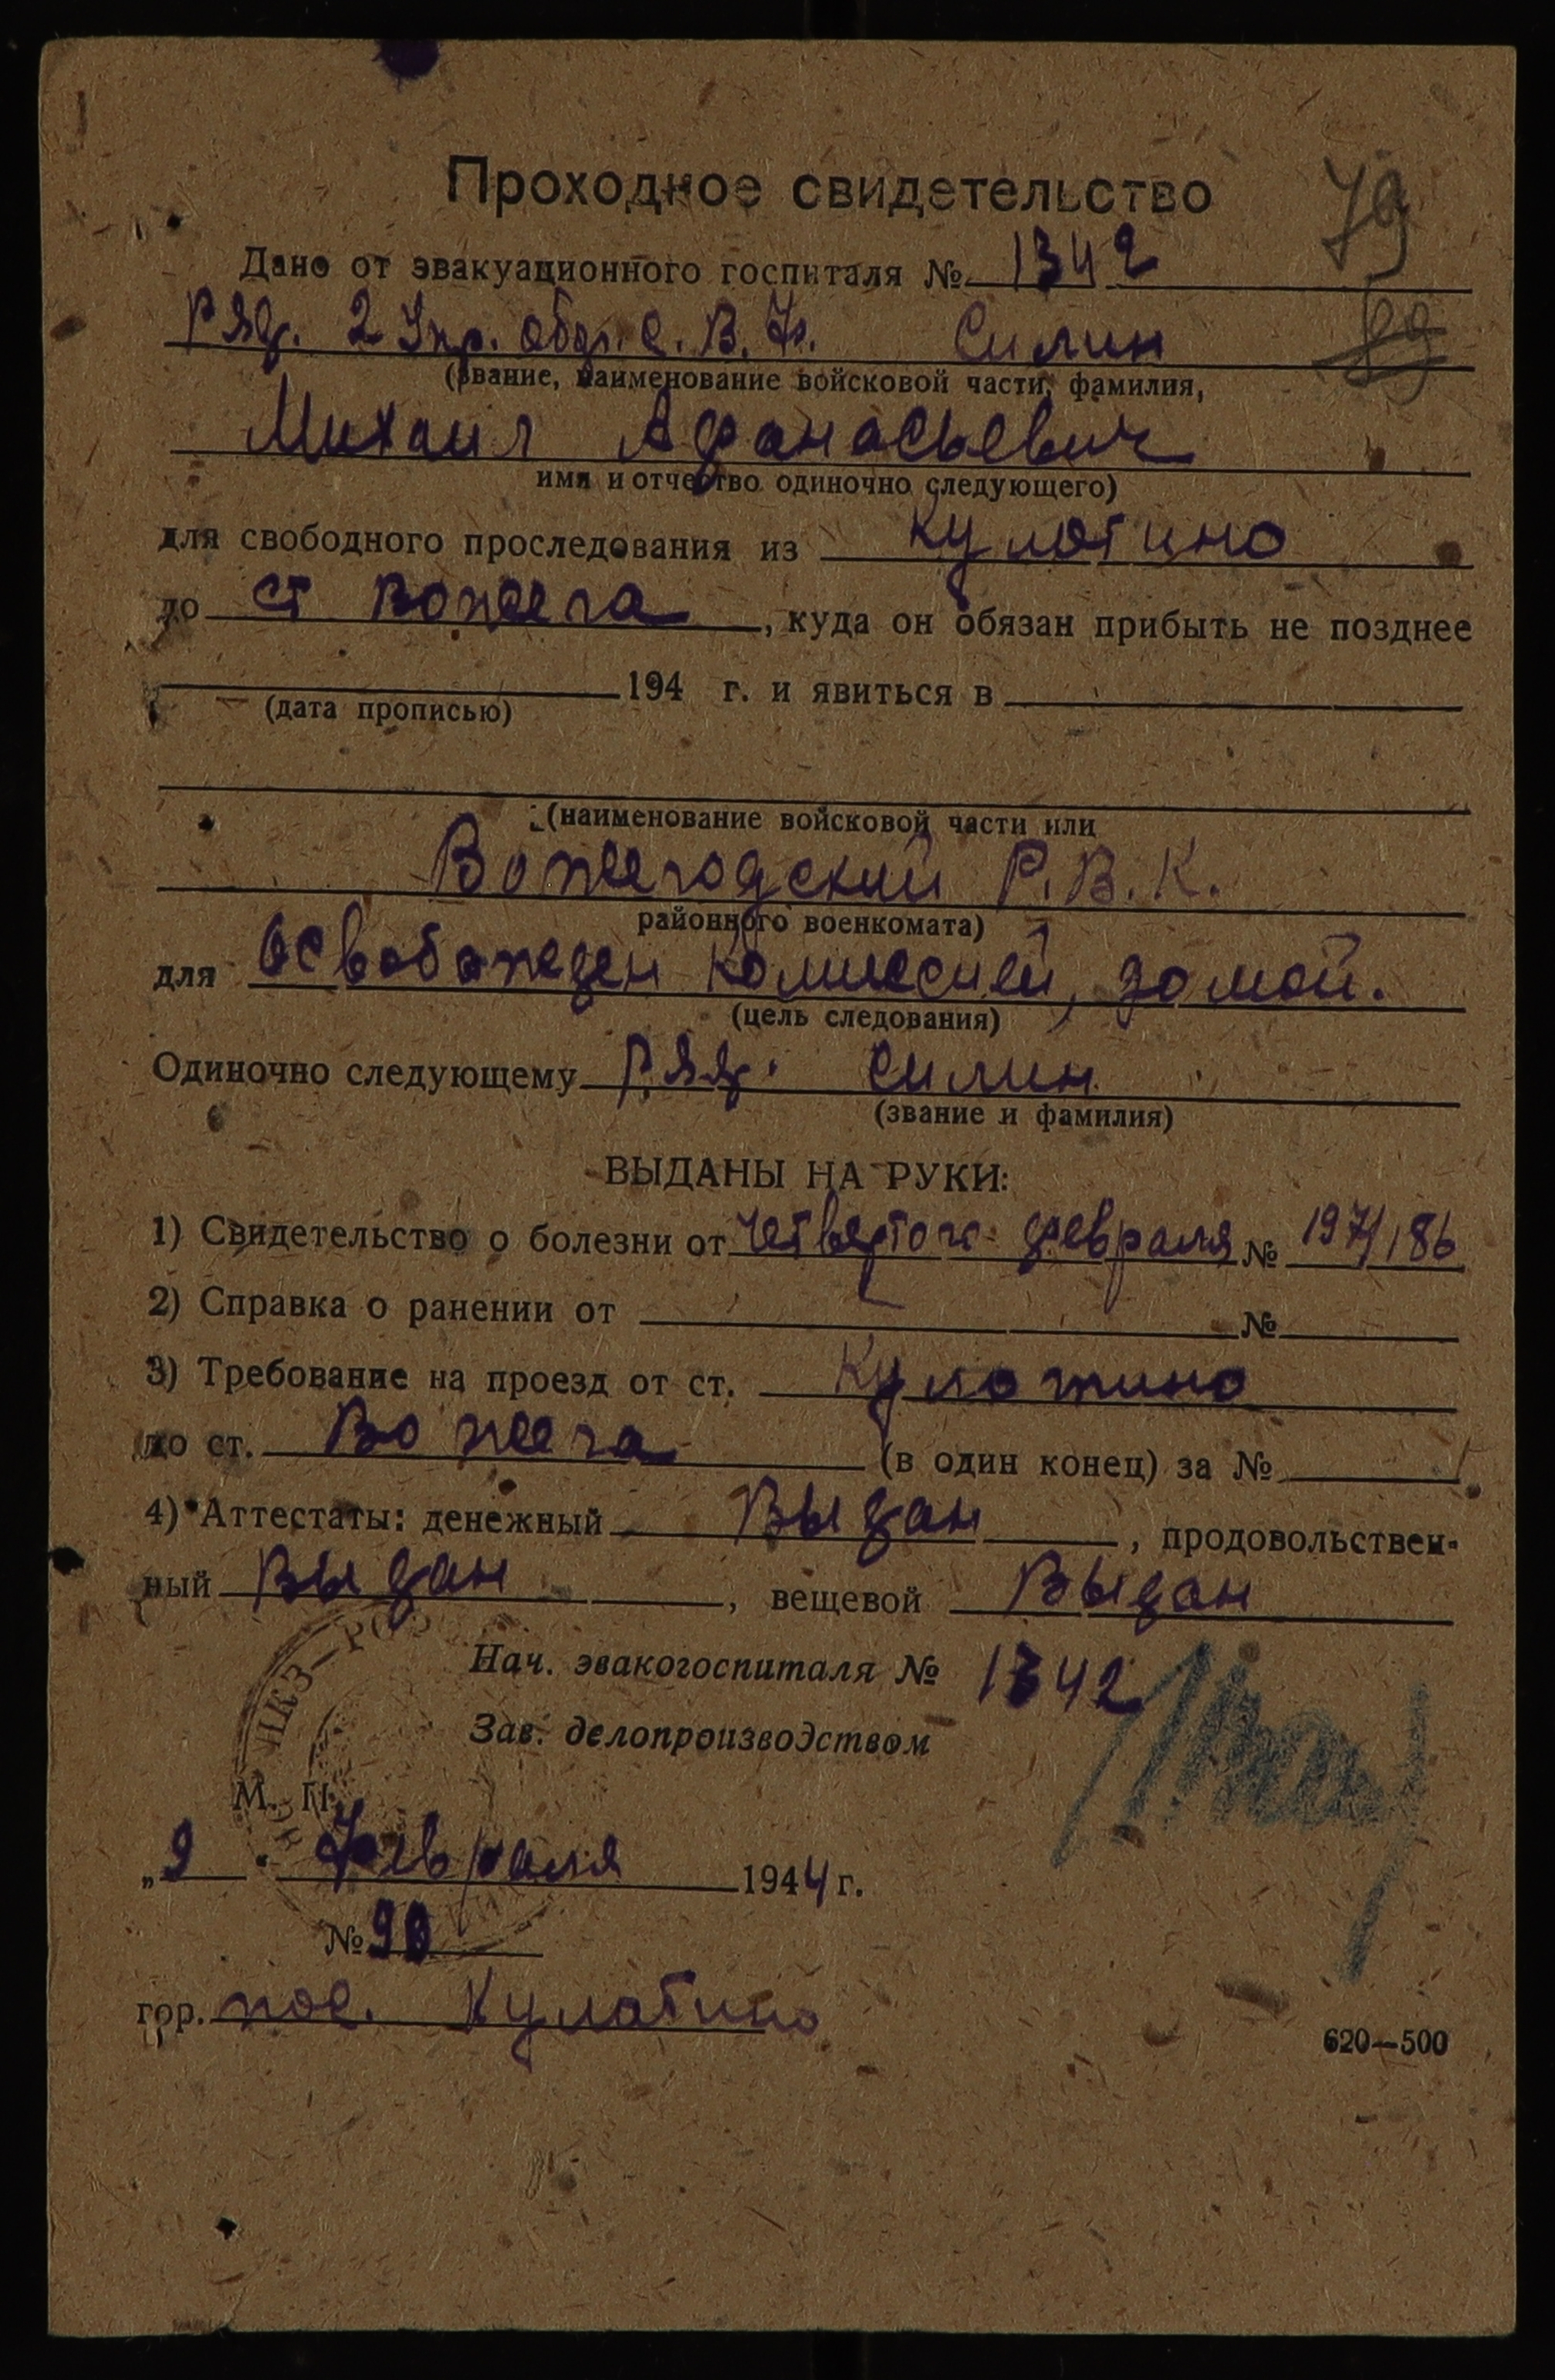 Проходное свидетельство
79
Дано от эвакуационного госпиталя № 1342
Ряд. 2 Упр. обор. С. В. Ф. Силин
89
(звание, наименование войсковой части, фамилия,
Михаил Афанасьевич
имя и отчество одиночно следующего)
для свободного проследования из Кулотино
до ст Вожега, куда он обязан прибыть не позднее
194 г. и явиться в
(дата прописью)
(наименование войсковой части или
Вожегодский Р.В.К.
районного военкомата)
для Освобожеден комиссией, домой.
(цель следования)
Одиночно следующему Ряд. Силин
(звание и фамилия)
ВЫДАНЫ НА РУКИ:
1) Свидетельство о болезни от четвертого февраля № 197/186
2) Справка о ранении от №
3) Требование на проезд от ст. Кулотино
до ст. Вожега (в один конец) за №
4) Аттестаты: денежный Выдан, продовольствен-
ный Выдан, вещевой Выдан
Нач. эвакогоспиталя № 1342
Зав. делопроизводством
М. П.
„9 " Февраля 1944 г.
№ 90
гор. пос. Кулотино
620—500